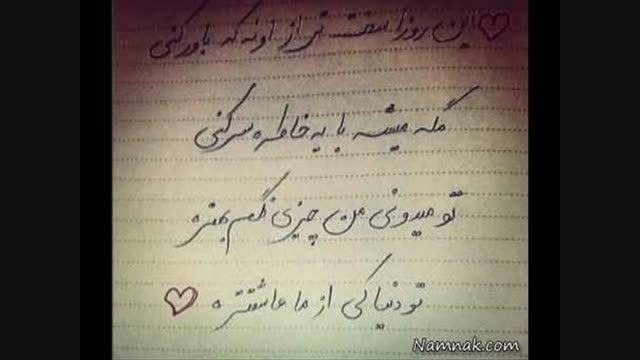 این روزا سخت تر از اونه که باور کنی
مگه میشه با یه خاطره سر کنی
تو میدونی من چیزی نگم بهتره
تو دنیا کی از ما عاشقتره
Namnak.com